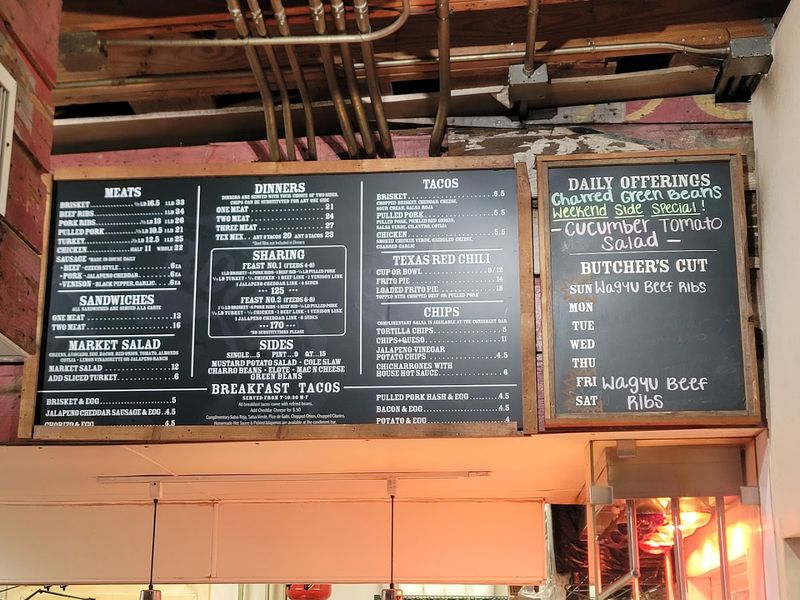 MEATS
BRISKET ½ LB 16.5 1LB 33
BEEF RIBS 1LB 34
PORK RIBS ½ LB 13 1LB 26
PULLED PORK ½ LB 10.5 1LB 21
TURKEY ½ LB 12.5 1LB 25
CHICKEN HALF 11 WHOLE 22
SAUSAGE *MADE IN HOUSE DAILY
-BEEF - CZECH STYLE .6 EA
-PORK - JALAPENO CHEDDAR .6 EA
-VENISON - BLACK PEPPER, GARLIC .6 EA
SANDWICHES
ALL SANDWICHES ARE SERVED A LA CARTE
ONE MEAT 13
TWO MEAT 16
MARKET SALAD
GREENS, AVOCADO, EGG, BACON, RED ONION, TOMATO, ALMONDS
COTIJA - LEMON VINAIGRETTE OR JALAPENO RANCH
MARKET SALAD 12
ADD SLICED TURKEY 6
DINNERS
DINNERS ARE SERVED WITH YOUR CHOICE OF TWO SIDES.
CHIPS CAN BE SUBSTITUTED FOR ANY ONE SIDE
ONE MEAT 21
TWO MEAT 24
THREE MEAT 27
TEX MEX ANY 2 TACOS 20 ANY 3 TACOS 23
*Beef Ribs not Included in Dinners
SHARING
FEAST NO.1 (FEEDS 4-6)
1 JALAPENO CHEDDAR LINK - 4 SIDES
--- 125 ---
FEAST NO.2 (FEEDS 6-8)
1 JALAPENO CHEDDAR LINK - 6 SIDES
--- 170 ---
*NO SUBSTITUTIONS PLEASE
SIDES
SINGLE...5 PINT...9 QT...15
MUSTARD POTATO SALAD - COLE SLAW
CHARRO BEANS - ELOTE - MAC N CHEESE
GREEN BEANS
TACOS
BRISKET 6.5
CHOPPED BRISKET, CHEDDAR CHEESE,
SOUR CREAM, SALSA ROJA
PULLED PORK 5.5
PULLED PORK, PICKLED RED ONIONS,
SALSA VERDE, CILANTRO, COTIJA
CHICKEN 5.5
SMOKED CHICKEN VERDE, GRIDDLED CHEESE,
CHARRED GARLIC
TEXAS RED CHILI
CUP OR BOWL 9/12
FRITO PIE 14
LOADED FRITO PIE
TOPPED WITH CHOPPED BEEF OR PULLED PORK
CHIPS
COMPLIMENTARY SALSA IS AVAILABLE AT THE CONDIMENT BAR
TORTILLA CHIPS 5
CHIPS+QUESO 11
JALAPENO-VINEGAR
POTATO CHIPS 4.5
CHICHARRONES WITH
HOUSE HOT SAUCE 6
BREAKFAST TACOS
SERVED FROM 7-10:30 M-F
All breakfast tacos come with refried beans.
Add Cheddar Cheese for $.50
Complimentary Salsa Roja, Salsa Verde, Pico de Gallo, Chopped Onion, Chopped Cilantro,
Homemade Hot Sauce & Pickled Jalapenos are available at the condiment bar.
BRISKET & EGG 5
JALAPENO CHEDDAR SAUSAGE & EGG 4.5
CHORIZO & EGG 4.5
PULLED PORK HASH & EGG 4.5
BACON & EGG 4.5
POTATO & EGG 4
DAILY OFFERINGS
Charred Green Beans
Weekend Side Special!
- Cucumber Tomato
Salad -
BUTCHER'S CUT
SUN Wagyu Beef Ribs
MON
TUE
WED
THU
FRI Wagyu Beef
SAT Ribs